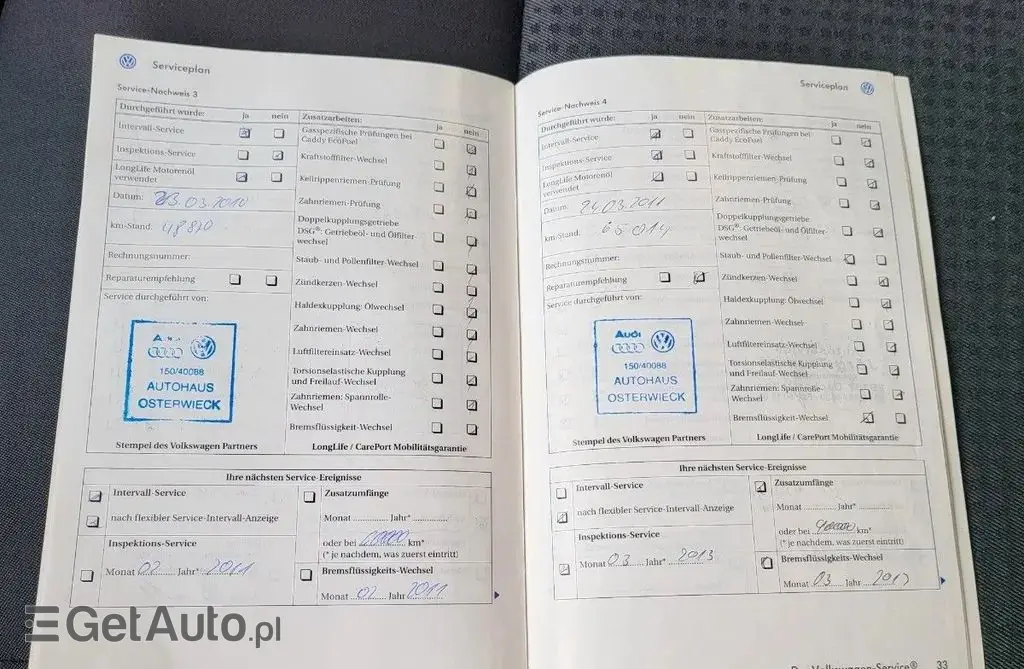 Serviceplan
Service-Nachweis 3
Durchgeführt wurde: ja nein
Intervall-Service
Inspektions-Service
LongLife Motorenöl
verwendet
Datum: 23.03.2010
km-Stand: 48820
Rechnungsnummer:
Reparaturempfehlung
Service durchgeführt von:
150/40088
AUTOHAUS
OSTERWIECK
Stempel des Volkswagen Partners
Zusatzarbeiten: ja nein
Gasspezifische Prüfungen bei
Caddy EcoFuel
Kraftstofffilter-Wechsel
Keilrippenriemen-Prüfung
Zahnriemen-Prüfung
Doppelkupplungsgetriebe
DSG®: Getriebeöl- und Ölfilter-
wechsel
Staub- und Pollenfilter-Wechsel
Zündkerzen-Wechsel
Haldexkupplung: Ölwechsel
Zahnriemen-Wechsel
Luftfiltereinsatz-Wechsel
Torsionselastische Kupplung
und Freilauf-Wechsel
Zahnriemen: Spannrolle-
Wechsel
Bremsflüssigkeit-Wechsel
LongLife / CarePort Mobilitätsgarantie
Ihre nächsten Service-Ereignisse
Intervall-Service
nach flexibler Service-Intervall-Anzeige
Inspektions-Service
Monat 02 Jahr* 2011
Zusatzumfänge
Monat Jahr*
oder bei km*
(* je nachdem, was zuerst eintritt)
Bremsflüssigkeits-Wechsel
Monat 02 Jahr 2011
Serviceplan
Service-Nachweis 4
Durchgeführt wurde: ja nein
Intervall-Service
Inspektions-Service
LongLife Motorenöl
verwendet
Datum: 24.03.2011
km-Stand: 65014
Rechnungsnummer:
Reparaturempfehlung
Service durchgeführt von:
Audi
150/40088
AUTOHAUS
OSTERWIECK
Stempel des Volkswagen Partners
Zusatzarbeiten: ja nein
Gasspezifische Prüfungen bei
Caddy EcoFuel
Kraftstofffilter-Wechsel
Keilrippenriemen-Prüfung
Zahnriemen-Prüfung
Doppelkupplungsgetriebe
DSG®: Getriebeöl- und Ölfilter-
wechsel
Staub- und Pollenfilter-Wechsel
Zündkerzen-Wechsel
Haldexkupplung: Ölwechsel
Zahnriemen-Wechsel
Luftfiltereinsatz-Wechsel
Torsionselastische Kupplung
und Freilauf-Wechsel
Zahnriemen: Spannrolle-
Wechsel
Bremsflüssigkeit-Wechsel
LongLife / CarePort Mobilitätsgarantie
Ihre nächsten Service-Ereignisse
Intervall-Service
nach flexibler Service-Intervall-Anzeige
Inspektions-Service
Monat 03 Jahr* 2013
Zusatzumfänge
Monat Jahr*
oder bei km*
(* je nachdem, was zuerst eintritt)
Bremsflüssigkeits-Wechsel
Monat 03 Jahr 2013
Volkswagen-Service® 33
GetAuto.pl